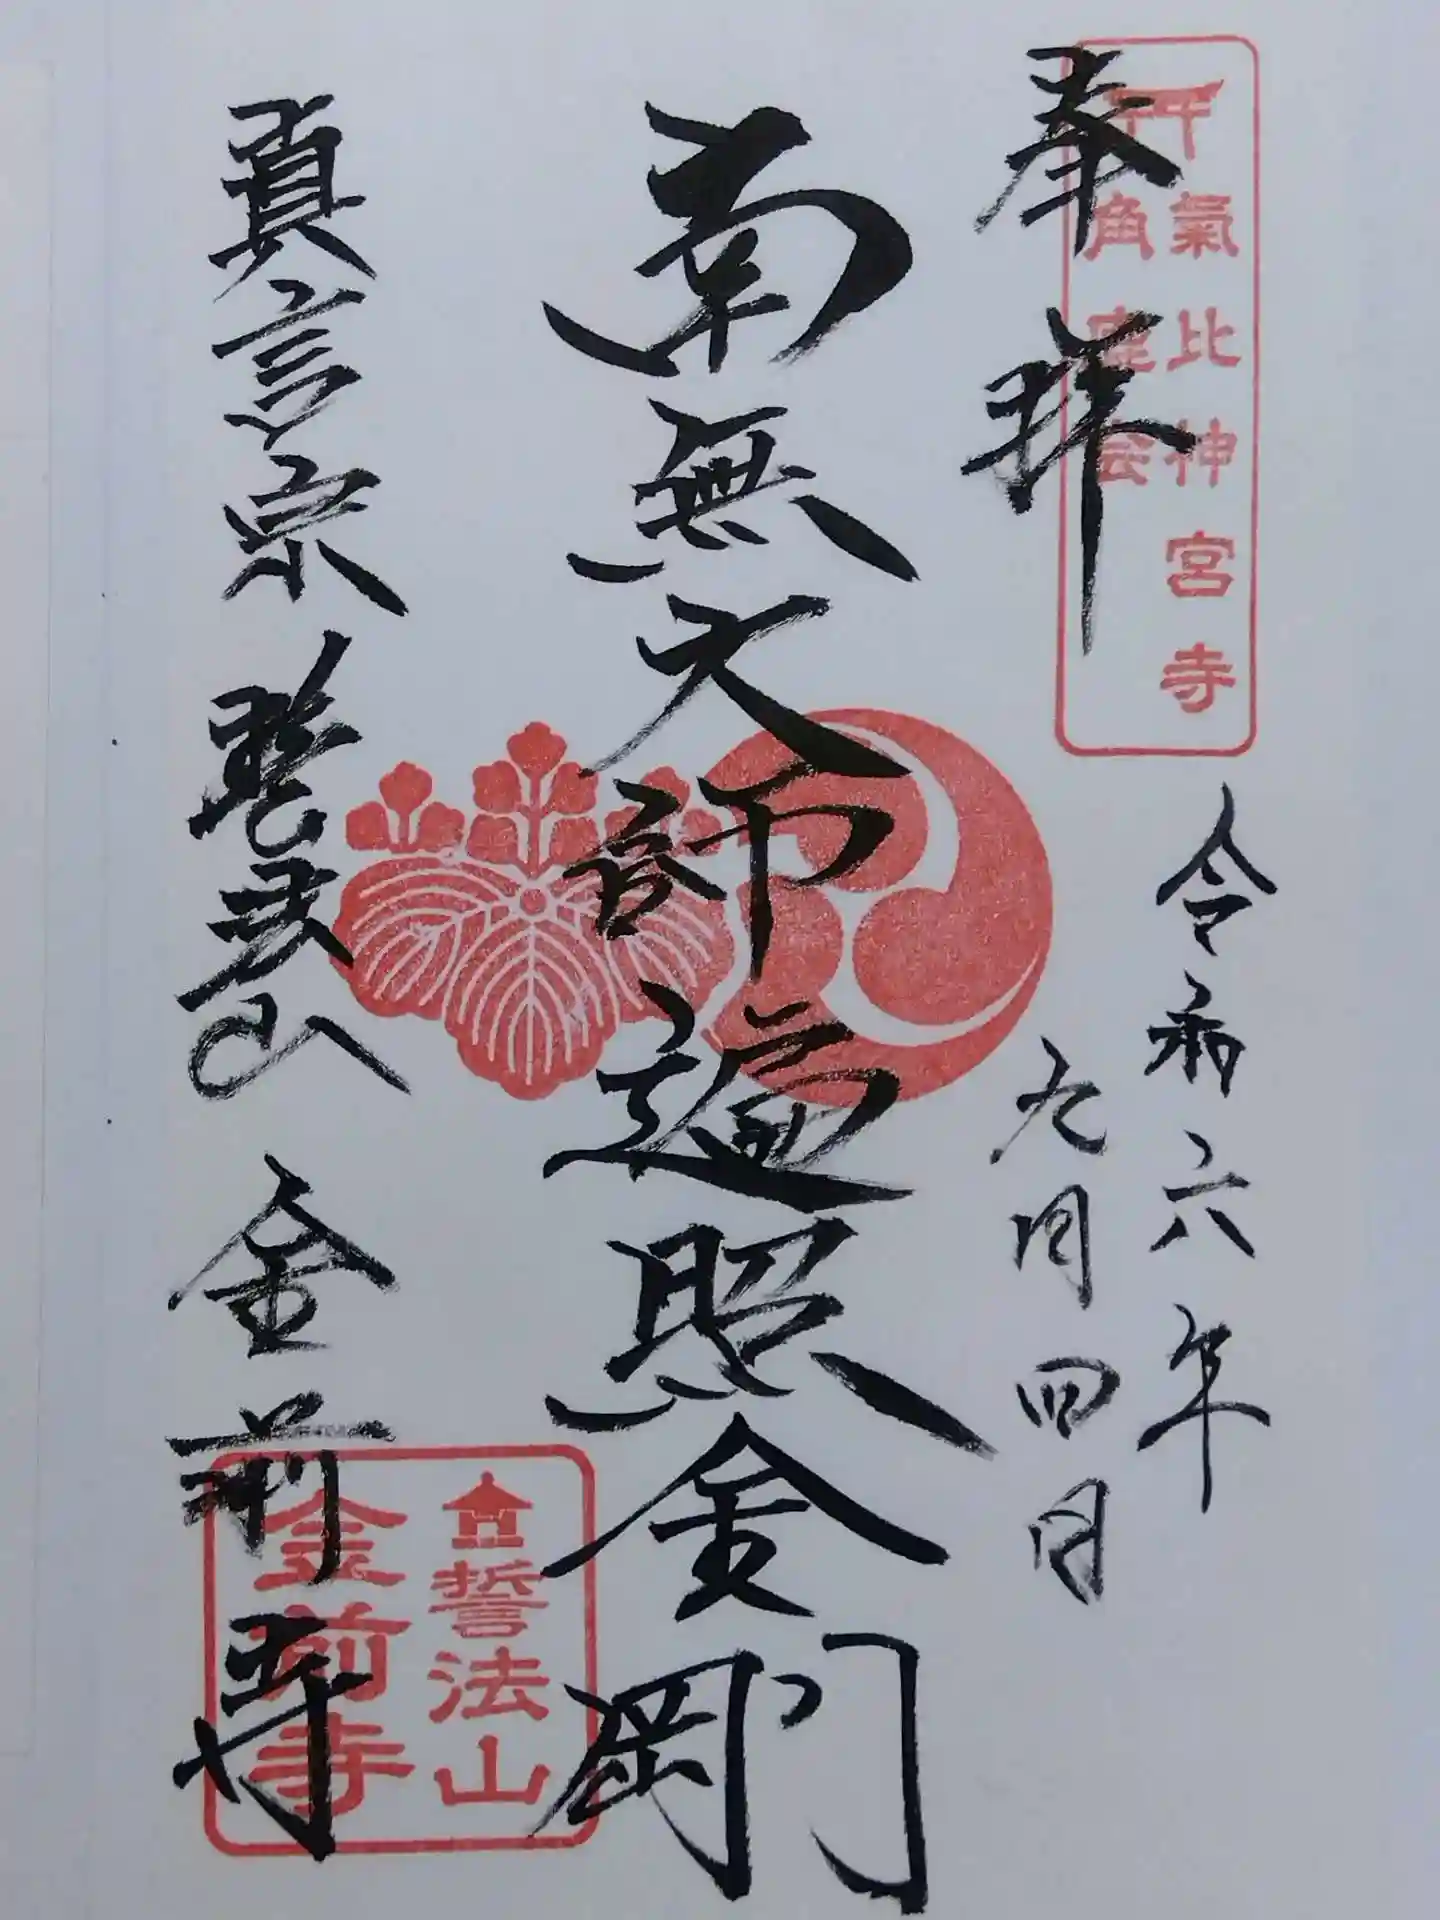 奉拝
氣比神宮寺
角鹿会
令和六年
九月四日
南無大師遍照金剛
真言宗 誓法山 金前寺
誓法山
金前寺